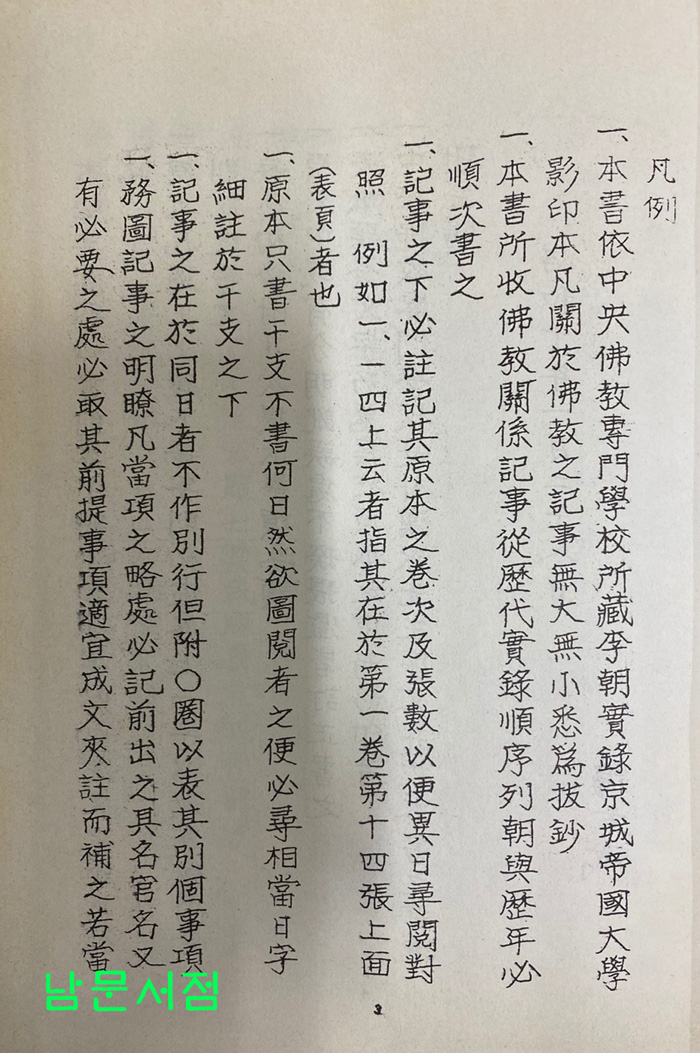 凡例
一、本書依中央佛教專門學校所藏李朝實錄京城帝國大學
影印本凡關於佛教之記事無大無小悉爲拔鈔
一、本書所收佛教關係記事從歷代實錄順序列朝與歷年必
順次書之
一、記事之下必註記其原本之卷次及張數以便異日尋閱對
照 例如一、一四上云者指其在於第一卷第十四張上面
(表頁)者也
一、原本只書干支不書何日然欲圖閱者之便必尋相當日字
細註於干支之下
一、記事之在於同日者不作別行但附〇圈以表其別個事項
一、務圖記事之明瞭凡當項之略處必記前出之具名官名又
有必要之處必取其前提事項適宜成文夾註而補之若當
남문서점
3